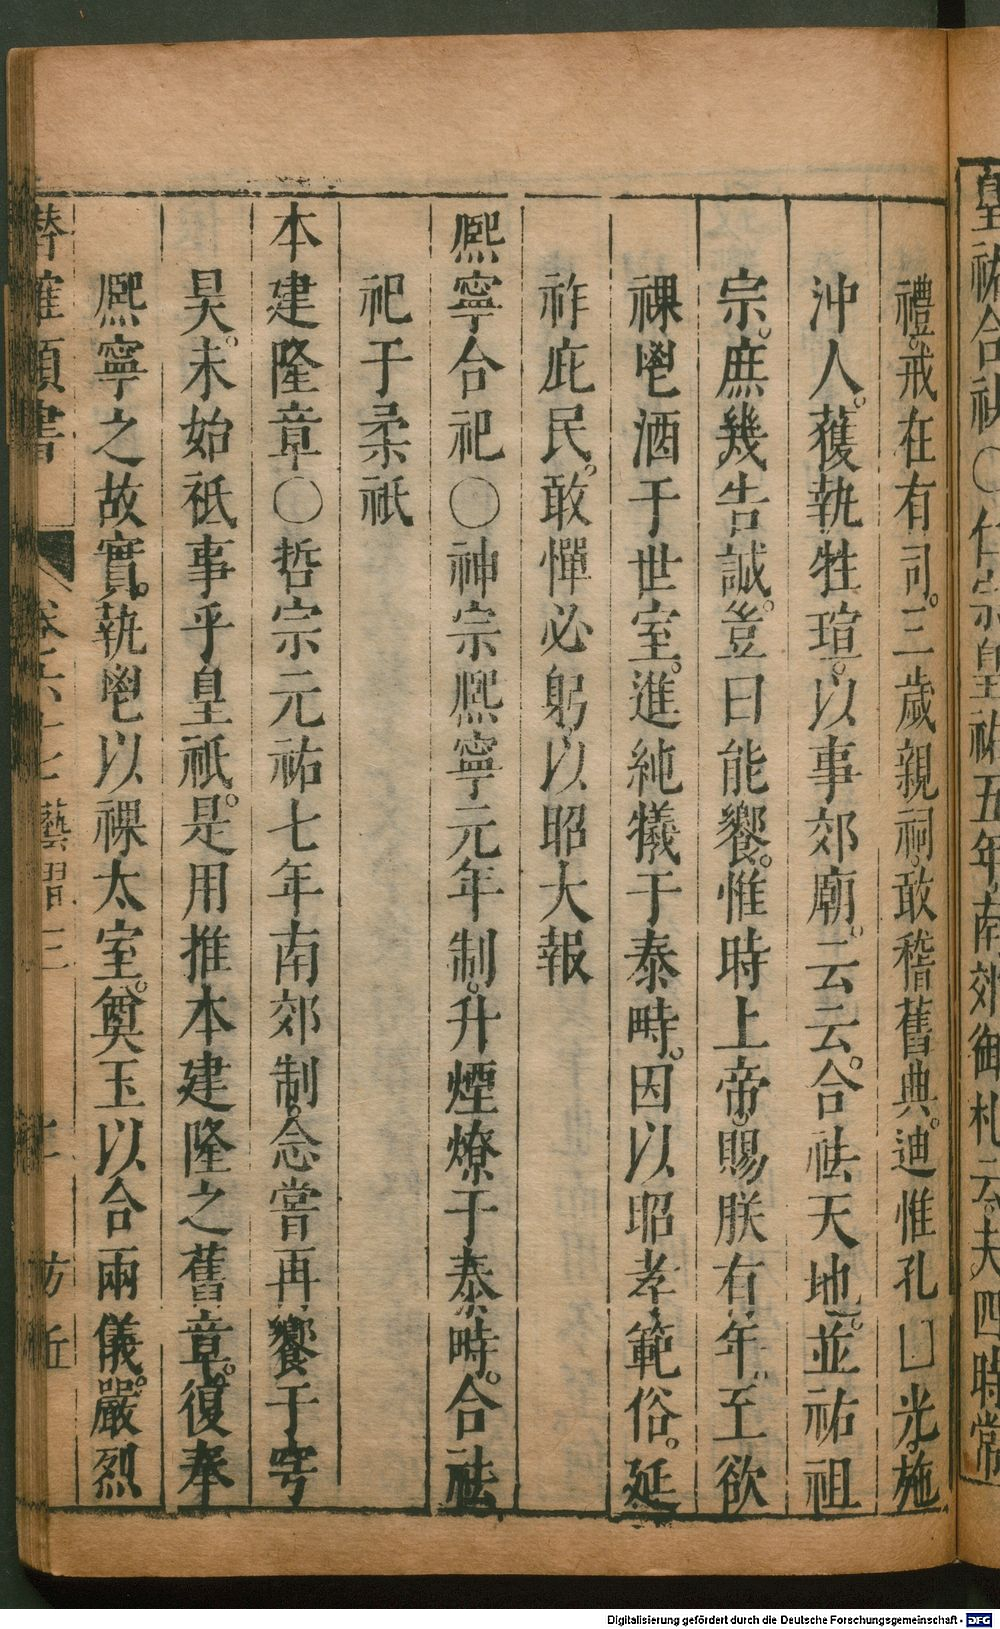 皇祐合祀○仁宗皇祐五年南郊御札云夫四時常
禮。戒在有司。三歲親祠。敢稽舊典。迪惟孔光。施
沖人。獲執牲瑄。以事郊廟。云云。合祛天地。並祐祖
宗。庶幾告誠。豈曰能饗。惟時上帝。賜朕有年。至欲
祼鬯酒于世室。進純犧于泰畤。因以昭孝範俗。延
祚庇民。敢憚必躬。以昭大報
熙寧合祀○神宗熙寧元年制。升煙燎于泰畤。合祛
祀于柔祇
本建隆章○哲宗元祐七年南郊制。念嘗再饗于穹
昊。未始祗事乎皇祇。是用推本建隆之舊章。復奉
熙寧之故實。執鬯以祼太室。奠玉以合兩儀。嚴烈
類書
Digitalisierung gefördert durch die Deutsche Forschungsgemeinschaft - DFG